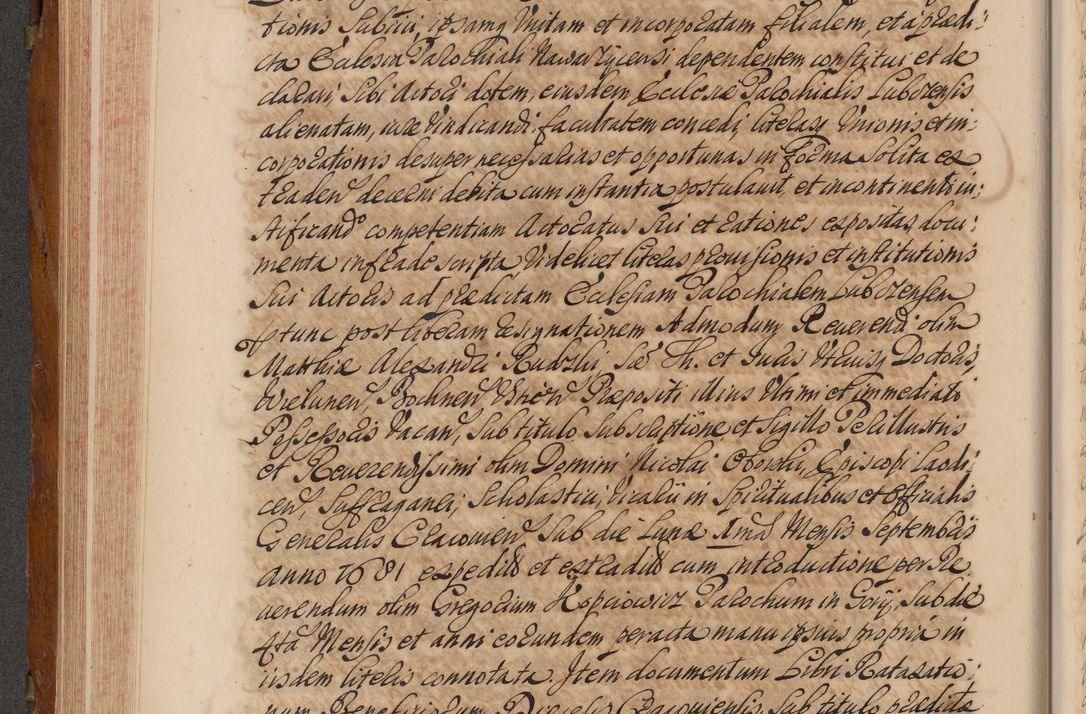 tionis Subijci, ipsamq Unitam et incorporatam filialem, et a prædi:
cta Ecclesia Parochiali Nawarzycensi dependentem constitui et de
clarari, Sibi Actori dotem, eiusdem Ecclesiæ Parochialis Lubczensis
alienatam, iure vindicandi facultatem concedi, literasq Unionis et in:
corporationis desuper necessarias et opportunas in forma Solita ex
traden decerni debita cum instantia postulavit, et incontinenti iu:
stificando competentiam Actoratus Sui et rationes expositas, docu:
menta infradescripta Videlicet literas provisionis et institutionis
Sui Actoris ad prædictam Ecclesiam Parochialem Lubczensem
tunc post liberam resignationem Admodum Reverendi olim
Matthiæ Alexandri Rudzki, Sæ Th. et Juris Utriusq Doctoris,
Wielunen Bochnen Præpositi illius Ultimi et immediati
Possessoris vacan, Sub titulo Subscriptione et Sigillo Perillustris
et Reverendissimi olim Domini Nicolai Oborski, Episcopi Laodi
cen, Suffraganei, Scholastici, Vicarii in Spiritualibus et Officialis
Generalis Cracovien Sub die Lunæ 1ma Mensis Septembris
anno 1681 expeditas et extraditas cum introductione per Re
verendum olim Gregorium Kopciowicz Parochum in Gory, Sub die
4ta Mensis et anni eorundem peracta manu ipsius propria in
iisdem literis connotata. Item documentum Libri Rataxatio:
num Beneficiorum Diœcesis Cracoviensis, Sub titulo prædicta